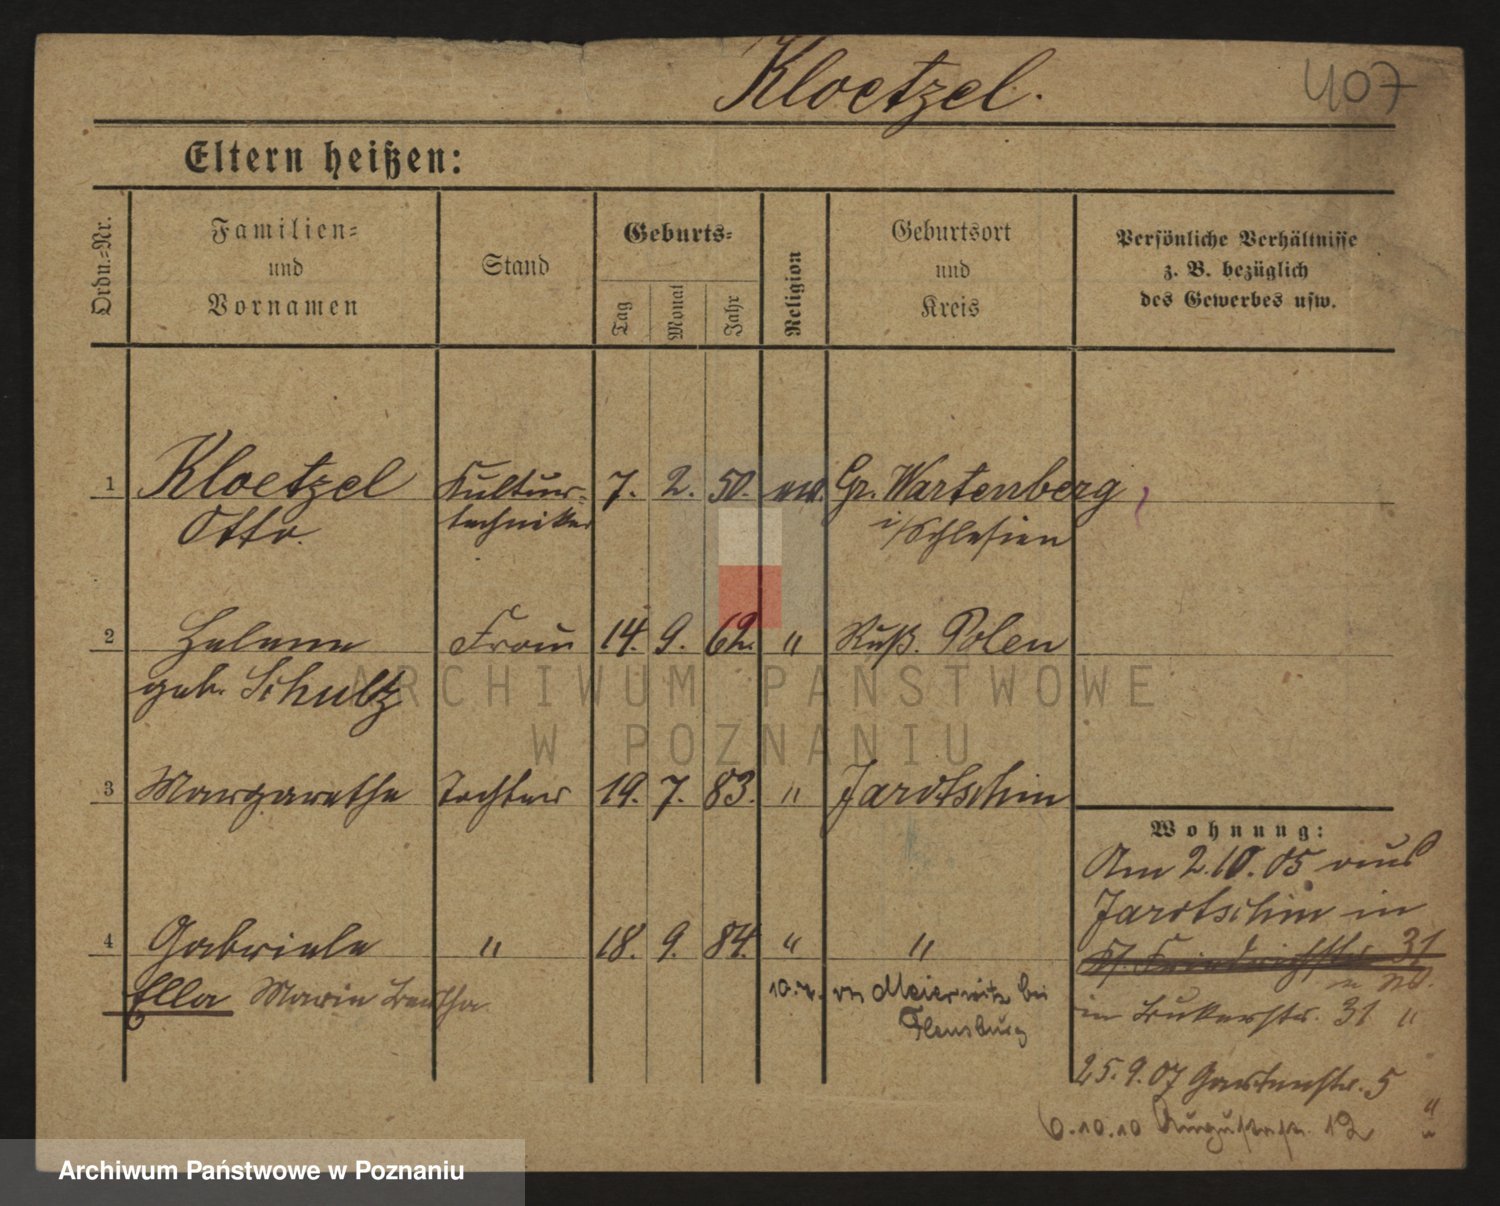 Kloetzel.
407
Eltern heißen:
Ordn.-Nr.
Familien-
und
Vornamen
Stand
Geburts-
Tag
Monat
Jahr
Religion
Geburtsort
und
Kreis
Persönliche Verhältnisse
z. B. bezüglich
des Gewerbes usw.
1 Kloetzel Kultur- 7. 2. 50. ev. Gr. Wartenberg
Otto. techniker i/Schlesien
2 Helene Frau 14. 9. 62. " Russ. Polen
geb. Schultz
3 Margarethe Tochter 19. 7. 83. " Jarotschin
Wohnung:
Am 2.10.05 aus
Jarotschin in
4 Gabriele " 18. 9. 84. " "
Kl. Friedrichstr. 31
Ella Marie Bertha
in Bukerstr. 31 "
bei
Flensburg
25.9.07 Gartenstr. 5 "
6.10.10 Augustastr. 12 "
ARCHIWUM PAŃSTWOWE
W POZNANIU
Archiwum Państwowe w Poznaniu